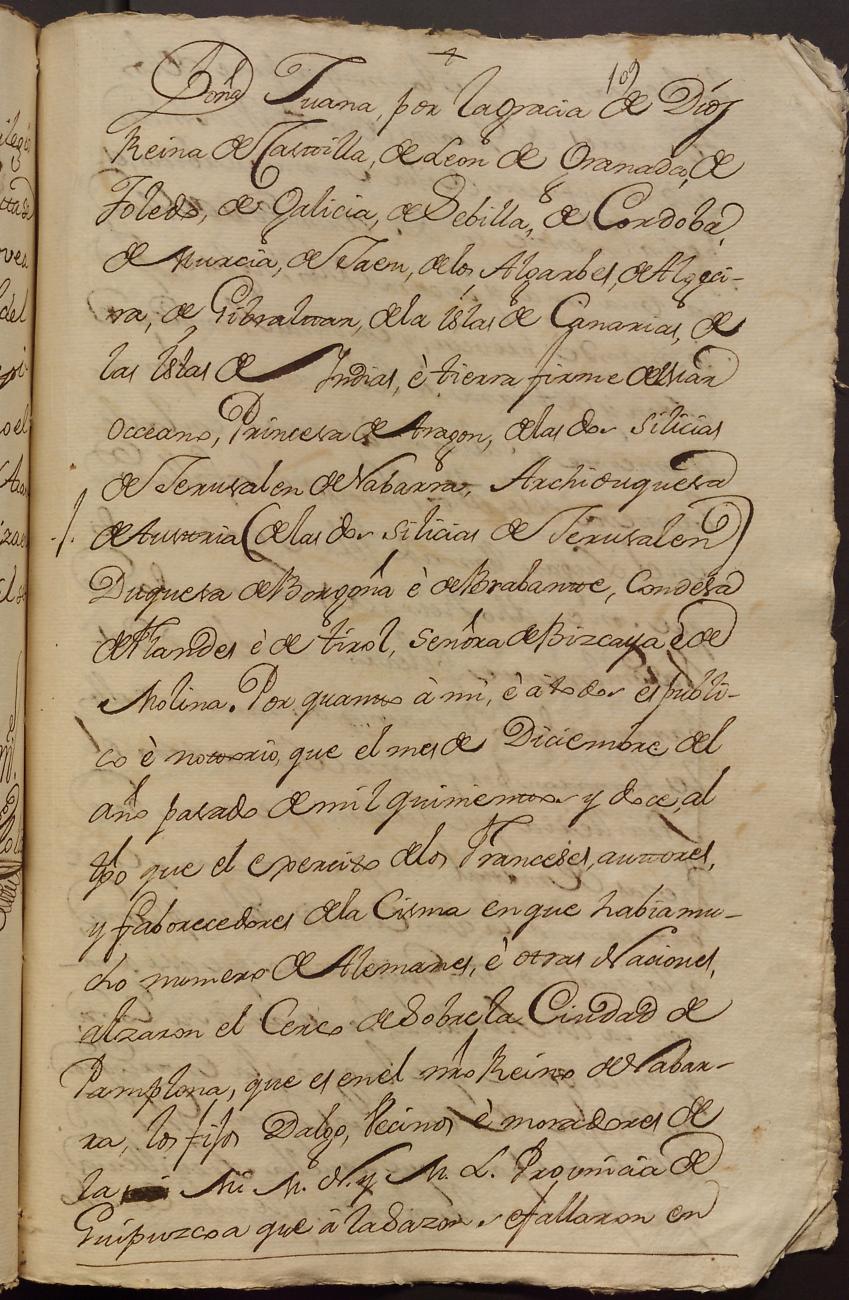 109
Doña Juana, por la gracia de Dios
Reina de Castilla, de Leon de Granada, de
Toledo, de Galicia, de Sebilla, de Cordoba,
de Murcia, de Jaen, de los Algarbes, de Algeci-
ra, de Gibraltar, de la Islas de Canarias, de
las Islas de Indias, è tierra firme del mar
occeano, Princesa de Aragon, de las dos silicias
de Jerusalen de Nabarra, Archiduquesa
de Austria (de las dos silicias de Jerusalen)
Duquesa de Borgoña è de Brabante, Condesa
de Flandes è de tirol, señora de Bizcaya è de
Molina. Por quanto à mi, è à todos es publi-
co è notorio, que el mes de Diciembre del
año pasado de mil quinientos y doce, al
tpo que el exercito de los Franceses, autores,
y faborecedores de la Cisma en que habia mu-
cho numero de Alemanes, è otras Naciones,
alzaron el Cerco de Sobre la Ciudad de
Pamplona, que es en el nro Reino de Nabar-
ra, los fijos Dalgo, Vecinos è moradores de
la Mi M. N. y M. L. Provincia de
Guipuzcoa que à la Sazon se fallaron en